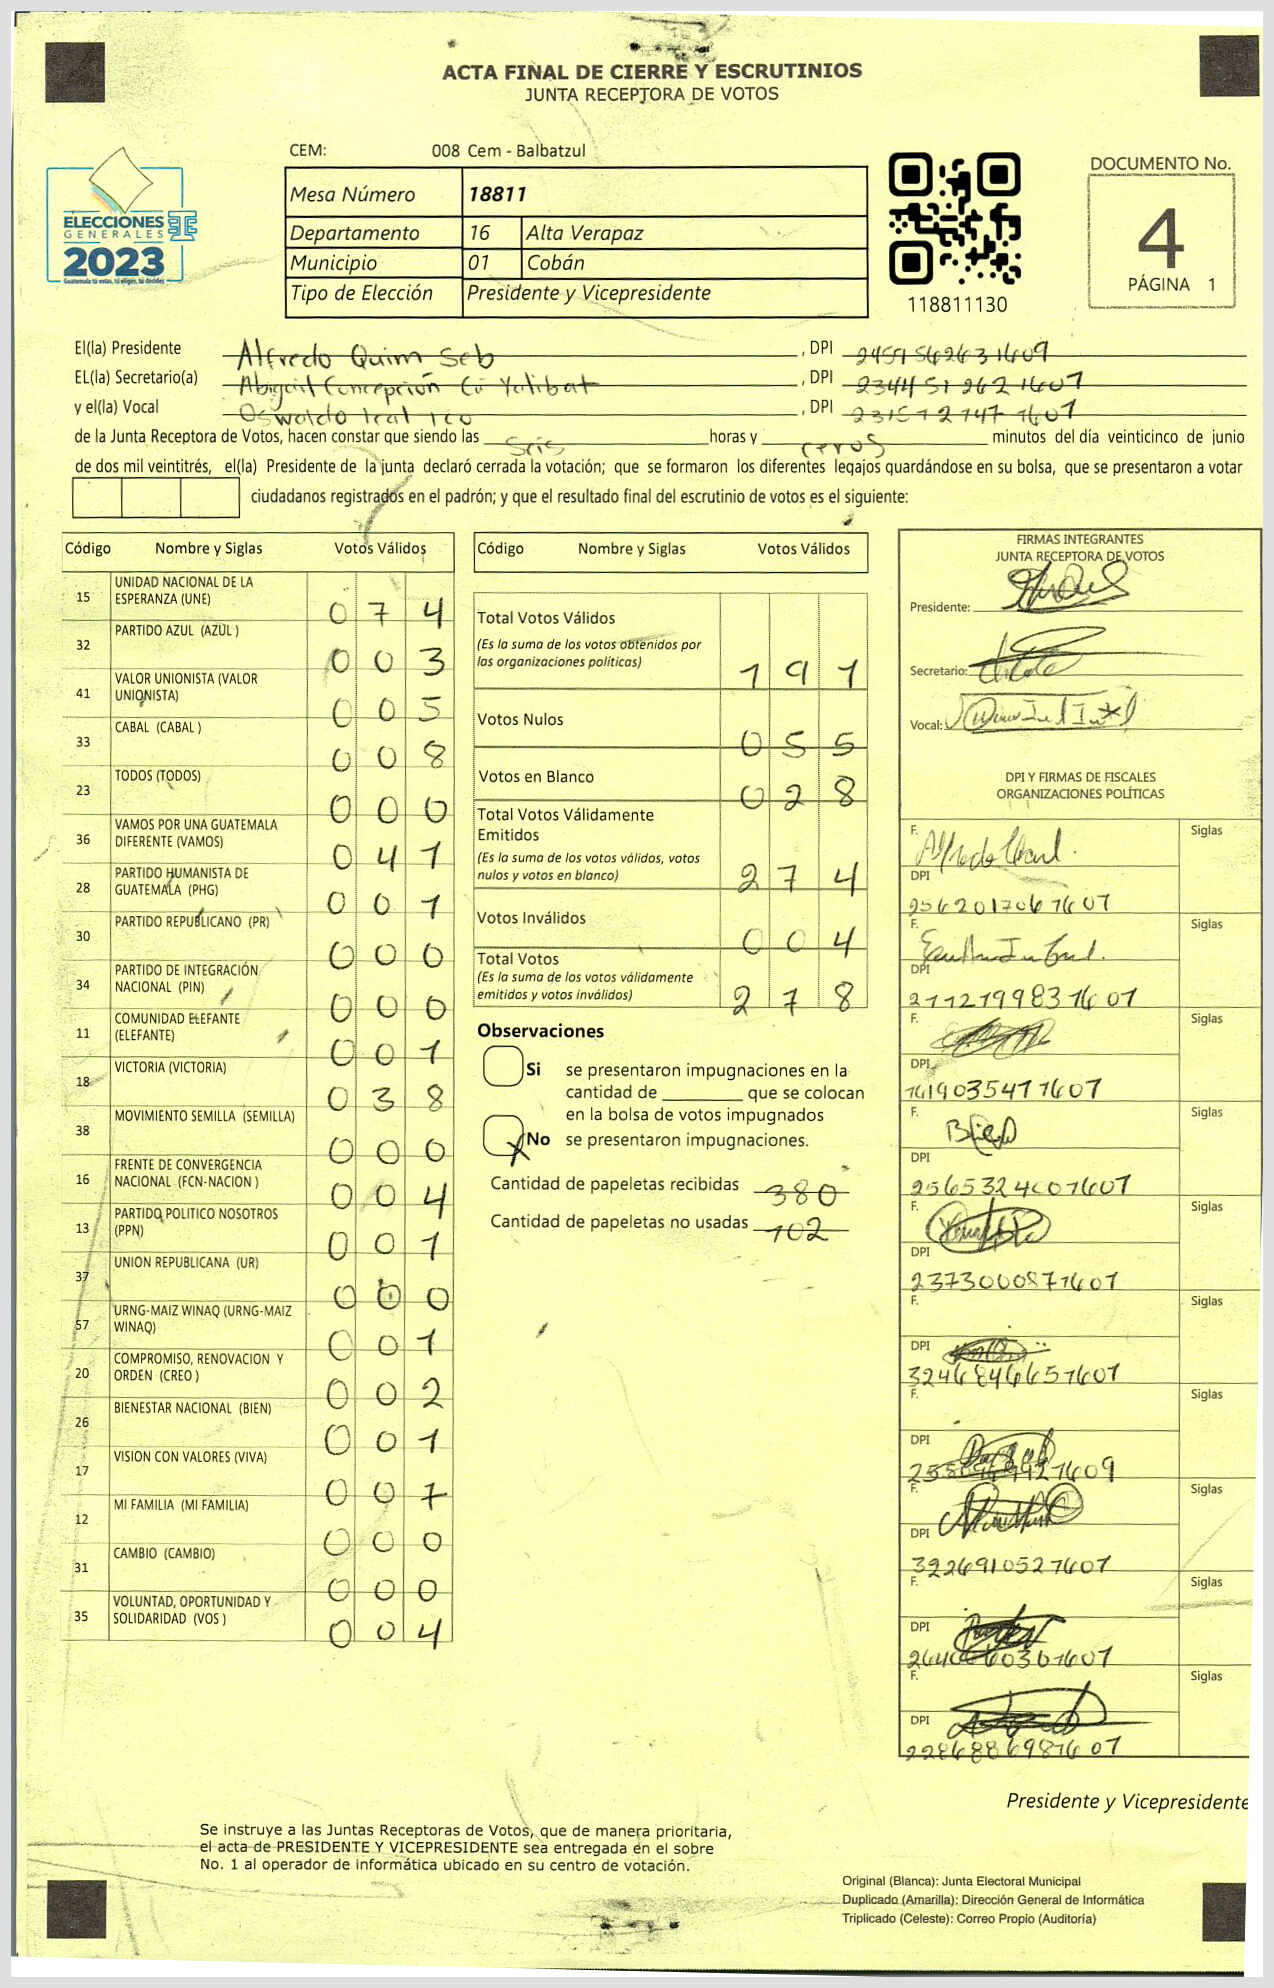 ACTA FINAL DE CIERRE Y ESCRUTINIOS
JUNTA RECEPTORA DE VOTOS
CEM: 008 Cem - Balbatzul
Mesa Número 18811
Departamento 16 Alta Verapaz
Municipio 01 Cobán
Tipo de Elección Presidente y Vicepresidente
ELECCIONES
GENERALES
2023
Guatemala tú votas, tú eliges, tú decides
118811130
DOCUMENTO No.
4
PÁGINA 1
El(la) Presidente Alfredo Quim Seb , DPI 2459562631609
EL(la) Secretario(a) Abigail Concepción Cú Yalibat , DPI 2344512621607
y el(la) Vocal Oswaldo , DPI
de la Junta Receptora de Votos, hacen constar que siendo las Seis horas y ceros minutos del día veinticinco de junio
de dos mil veintitrés, el(la) Presidente de la junta declaró cerrada la votación; que se formaron los diferentes legajos quardándose en su bolsa, que se presentaron a votar
ciudadanos registrados en el padrón; y que el resultado final del escrutinio de votos es el siguiente:
Código Nombre y Siglas Votos Válidos
15 UNIDAD NACIONAL DE LA
ESPERANZA (UNE) 0 7 4
32 PARTIDO AZUL (AZUL ) 0 0 3
41 VALOR UNIONISTA (VALOR
UNIONISTA) 0 0 5
33 CABAL (CABAL ) 0 0 8
23 TODOS (TODOS) 0 0 0
36 VAMOS POR UNA GUATEMALA
DIFERENTE (VAMOS) 0 4 1
28 PARTIDO HUMANISTA DE
GUATEMALA (PHG) 0 0 1
30 PARTIDO REPUBLICANO (PR) 0 0 0
34 PARTIDO DE INTEGRACIÓN
NACIONAL (PIN) 0 0 0
11 COMUNIDAD ELEFANTE
(ELEFANTE) 0 0 1
18 VICTORIA (VICTORIA) 0 3 8
38 MOVIMIENTO SEMILLA (SEMILLA) 0 0 0
16 FRENTE DE CONVERGENCIA
NACIONAL (FCN-NACION ) 0 0 4
13 PARTIDO POLITICO NOSOTROS
(PPN) 0 0 1
37 UNION REPUBLICANA (UR) 0 0 0
57 URNG-MAIZ WINAQ (URNG-MAIZ
WINAQ) 0 0 1
20 COMPROMISO, RENOVACION Y
ORDEN (CREO ) 0 0 2
26 BIENESTAR NACIONAL (BIEN) 0 0 1
17 VISION CON VALORES (VIVA) 0 0 7
12 MI FAMILIA (MI FAMILIA) 0 0 0
31 CAMBIO (CAMBIO) 0 0 0
35 VOLUNTAD, OPORTUNIDAD Y
SOLIDARIDAD (VOS ) 0 0 4
Código Nombre y Siglas Votos Válidos
Total Votos Válidos
(Es la suma de los votos obtenidos por
las organizaciones políticas) 1 9 1
Votos Nulos 0 5 5
Votos en Blanco 0 2 8
Total Votos Válidamente
Emitidos
(Es la suma de los votos válidos, votos
nulos y votos en blanco) 2 7 4
Votos Inválidos 0 0 4
Total Votos
(Es la suma de los votos válidamente
emitidos y votos inválidos) 2 7 8
Observaciones
Si se presentaron impugnaciones en la
cantidad de ________ que se colocan
en la bolsa de votos impugnados
X No se presentaron impugnaciones.
Cantidad de papeletas recibidas 380
Cantidad de papeletas no usadas 102
FIRMAS INTEGRANTES
JUNTA RECEPTORA DE VOTOS
Presidente:
Secretario:
Vocal:
DPI Y FIRMAS DE FISCALES
ORGANIZACIONES POLÍTICAS
F. Alfredo Siglas
DPI
2562017067607
F. Siglas
DPI
2112199831607
F. Siglas
DPI
1619035471607
F. Siglas
DPI
2565324001607
F. Siglas
DPI
2373000871607
F. Siglas
DPI
3246846651607
F. Siglas
DPI
F. Siglas
DPI
3226910527607
F. Siglas
DPI
F. Siglas
DPI
2286886981607
Presidente y Vicepresidente
Se instruye a las Juntas Receptoras de Votos, que de manera prioritaria,
el acta de PRESIDENTE Y VICEPRESIDENTE sea entregada en el sobre
No. 1 al operador de informática ubicado en su centro de votación.
Original (Blanca): Junta Electoral Municipal
Duplicado (Amarilla): Dirección General de Informática
Triplicado (Celeste): Correo Propio (Auditoría)